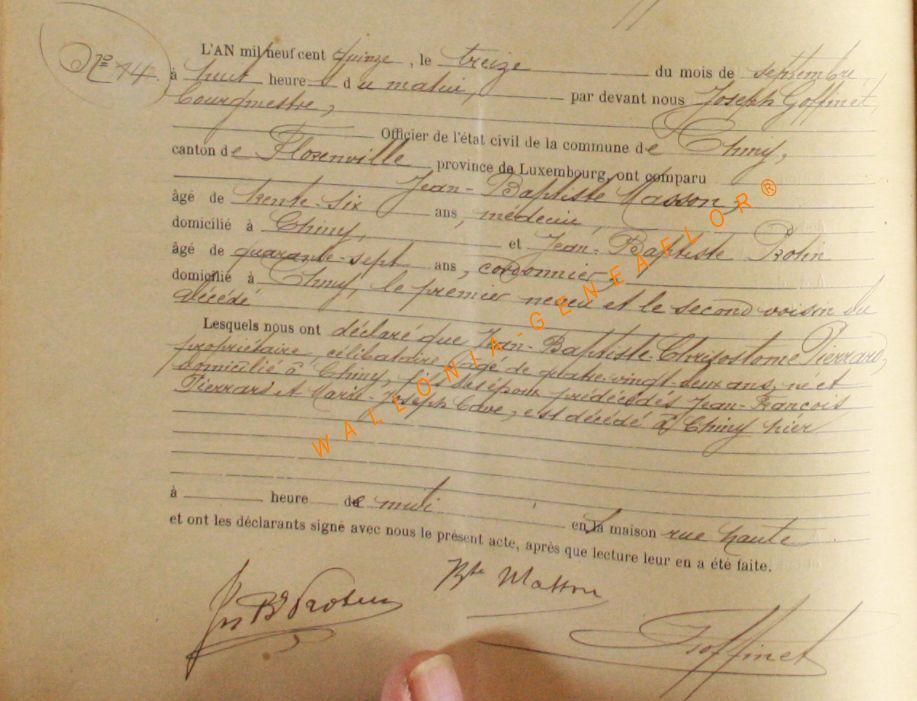 No 14.
L'AN mil neuf cent quinze, le treize du mois de septembre,
à huit heure du matin, par devant nous Joseph Goffinet,
bourgmestre,
Officier de l'état civil de la commune de Chiny,
canton de Florenville province de Luxembourg, ont comparu
Jean-Baptiste Masson,
âgé de trente-six ans, médecin,
domicilié à Chiny, et Jean-Baptiste Rotin
âgé de quarante-sept ans, cordonnier,
domicilié à Chiny, le premier neveu et le second voisin du
décédé
Lesquels nous ont déclaré que Jean-Baptiste-Chrysostome Pierrard,
propriétaire, célibataire, âgé de quatre-vingt deux ans, né et
domicilié à Chiny, fils des époux prédécédés Jean-François
Pierrard et Marie-Joseph Cave, est décédé à Chiny hier
à heure de midi en la maison rue haute
et ont les déclarants signé avec nous le présent acte, après que lecture leur en a été faite.
Bte Masson
Goffinet
WALLONIA-GENEAFLOR®